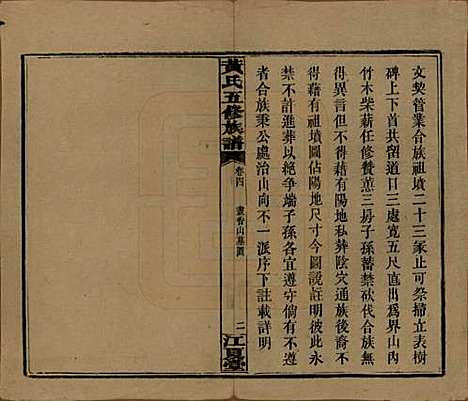 文契管業合族祖墳二十三冢止可祭掃立表樹
碑上下首共留道口三處寬五尺出為界山內
竹木柴薪任修贊薰三房子孫蓄禁砍伐合族無
得異言但不得以有陽地私葬陰穴通族後裔不
得藉有祖墳圖佔陽地尺寸今圖說註明彼此永
禁不許進葬以絕爭端子孫各宜遵守倘有不遵
者合族秉公處治山向不一派序下註載詳明
黃氏五修族譜
卷四
山墓圖
二
江夏堂